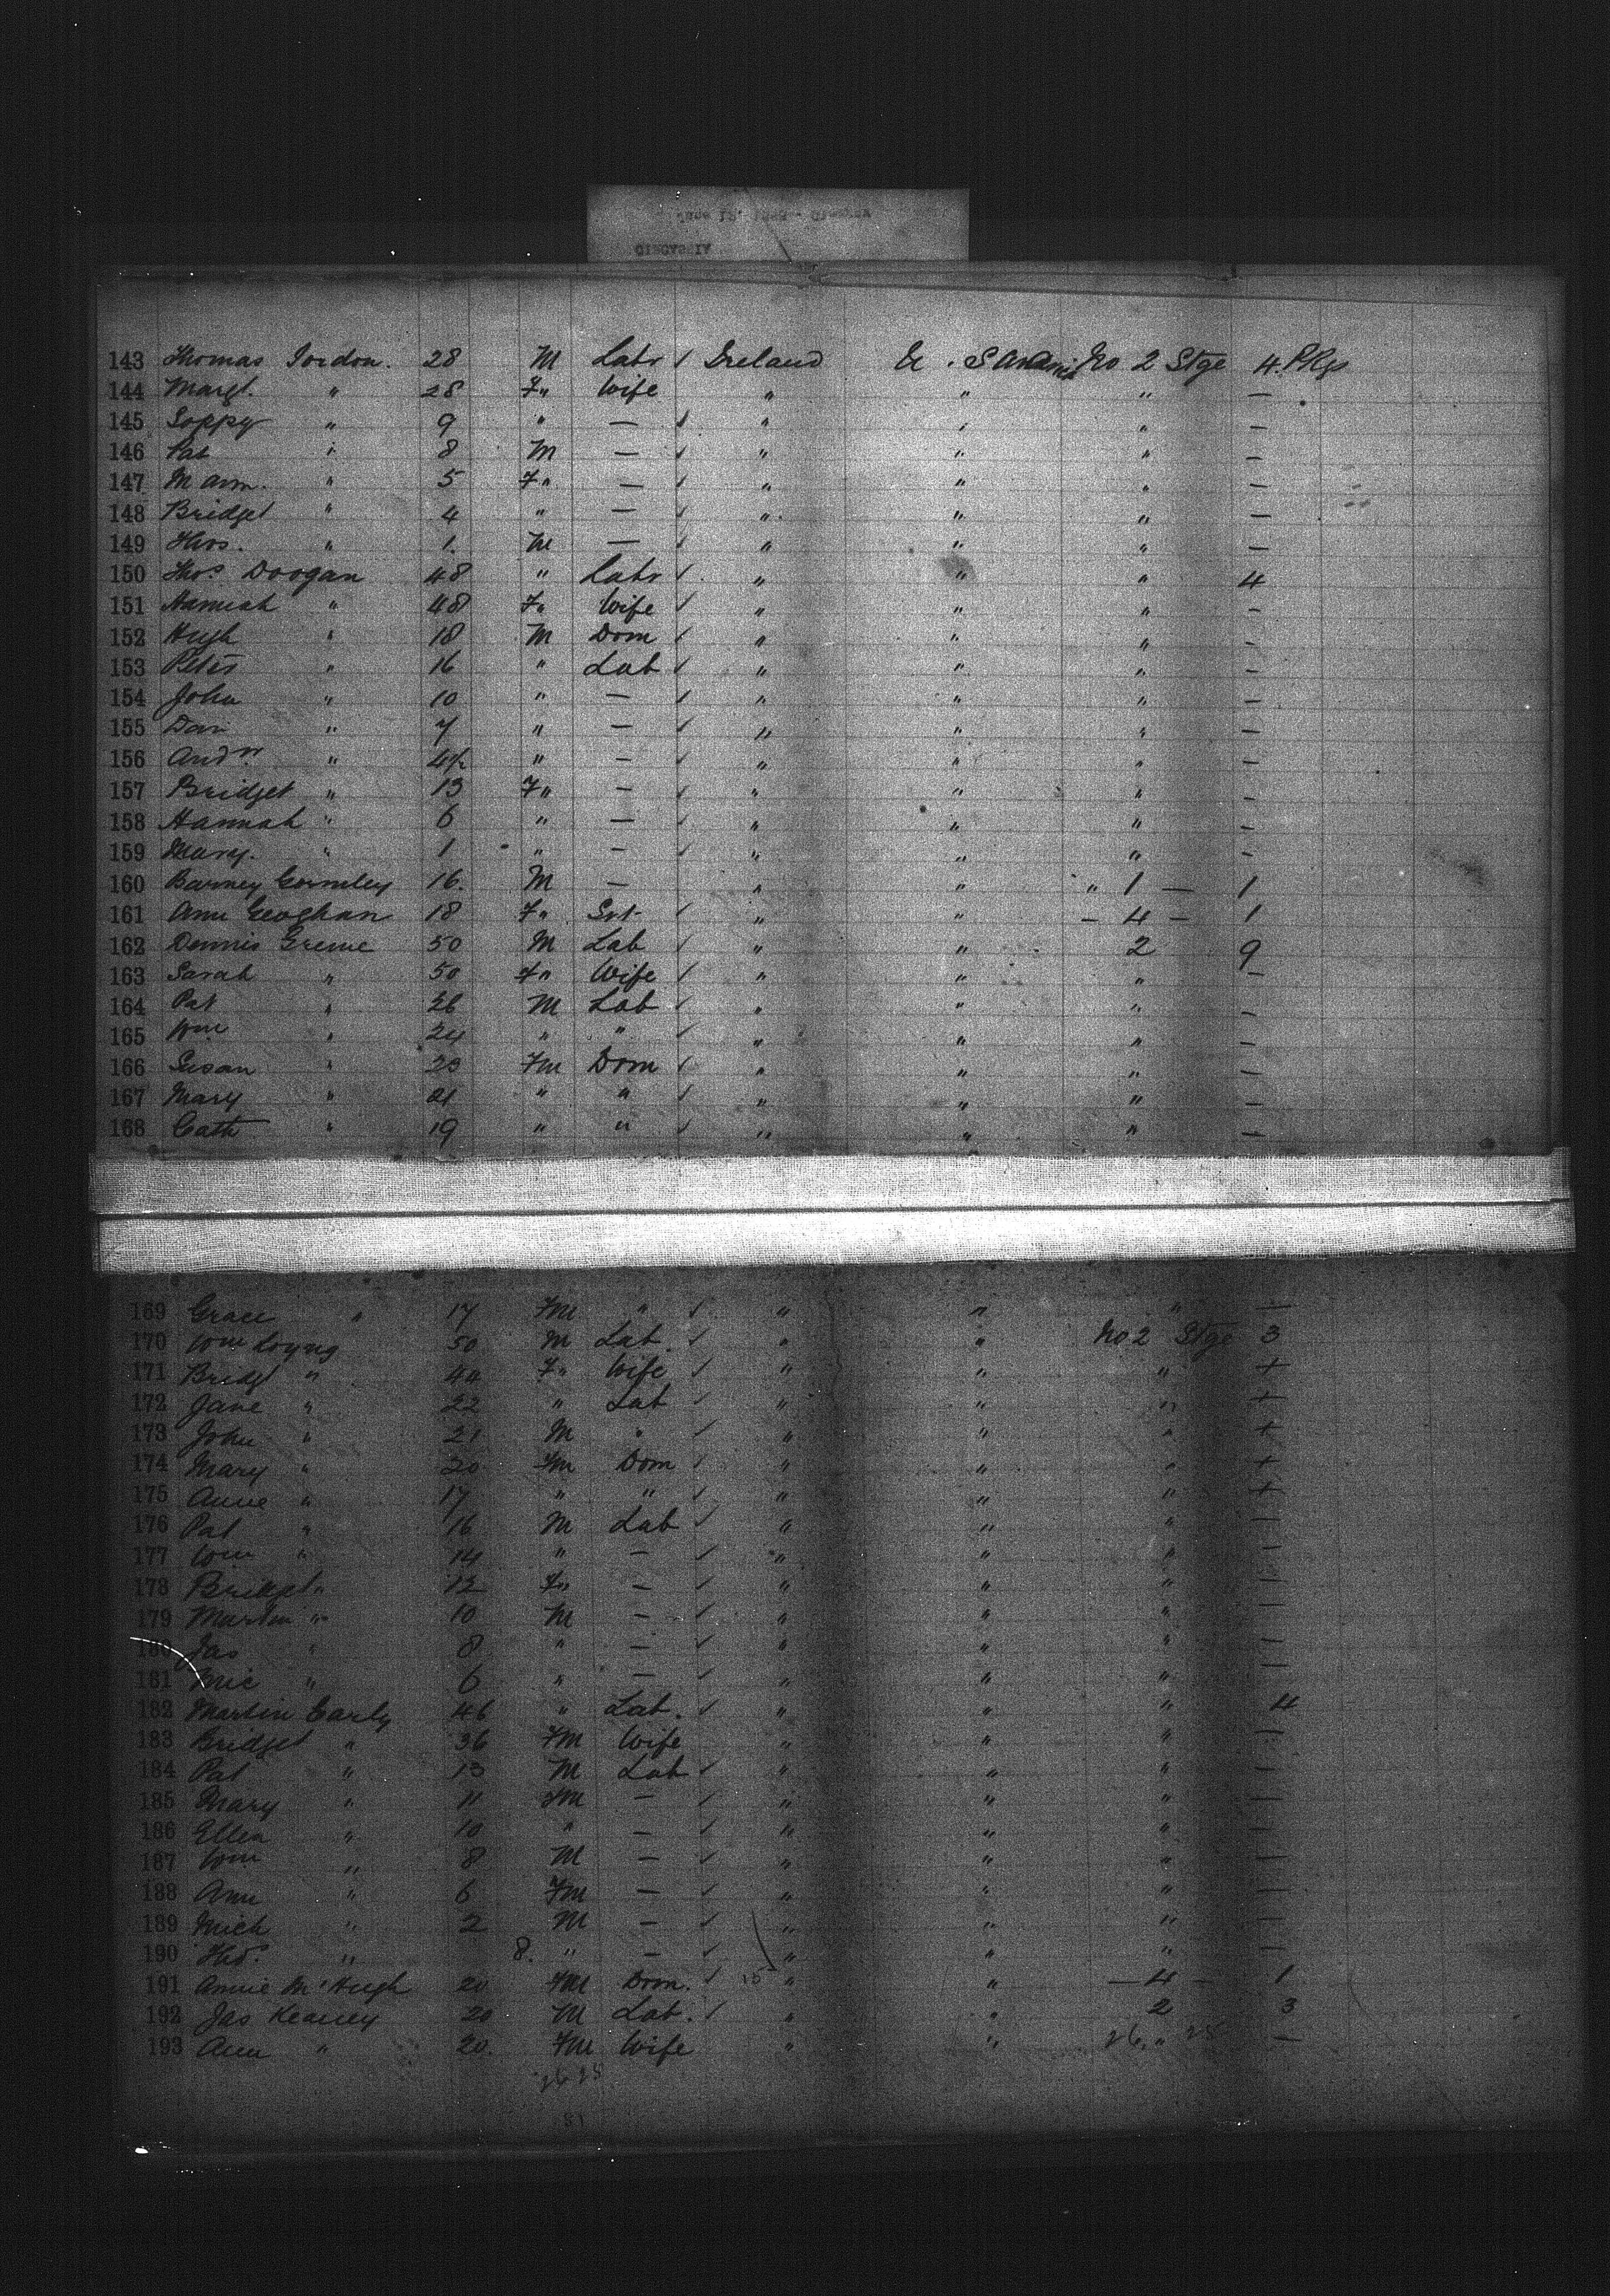 143 Thomas Jordon. 28 M Labr Ireland U. S America No 2 Stge 4. Pkgs
144 Margt. " 28 F" Wife " " " —
145 Soppy " 9 " — " " " —
146 Pat " 8 M — " " " —
147 M Ann. " 5 F" — " " " —
148 Bridget " 4 " — " " " —
149 Thos. " 1. M — " " " —
150 Thos Doogan 48 " Labr " " " 4
151 Hannah " 48 F" Wife " " " —
152 Hugh " 18 M Dom " " " —
153 Peter " 16 " Lab " " " —
154 John " 10 " — " " " —
155 Dan " 7 " — " " " —
156 Andw. " 4½ " — " " " —
157 Bridget " 13 F" — " " " —
158 Hannah " 6 " — " " " —
159 Mary. " 1 " — " " " —
160 Barney Gormley 16. M — " " " 1 — 1
161 Ann Geoghan 18 F" Svt " " — 4 — 1
162 Dennis Greme 50 M Lab " " 2 9
163 Sarah " 50 F" Wife " " " —
164 Pat " 26 M Lab " " " —
165 Wm " 24 " " " " " —
166 Susan " 23 Fm Dom " " " —
167 Mary " 21 " " " " " —
168 Cath " 19 " " " " " —
169 Grace " 17 Fm " " " " —
170 Wm Coyng 50 M Lab. " " No 2 Stge 3
171 Bridgt " 44 F" Wife " " " +
172 Jane " 22 " Lab " " " +
173 John " 21 M " " " " +
174 Mary " 20 Fm Dom " " " +
175 Anne " 17 " " " " " +
176 Pat " 16 M Lab " " " —
177 Wm " 14 " — " " " —
178 Bridget " 12 F" — " " " —
179 Martin " 10 M — " " " —
180 Jas " 8 " — " " " —
181 Mic " 6 " — " " " —
182 Martin Early 46 " Lab. " " " 4
183 Bridget " 36 Fm Wife " " " —
184 Pat " 13 M Lab " " " —
185 Mary " 11 Fm — " " " —
186 Ellen " 10 " — " " " —
187 Wm " 8 M — " " " —
188 Ann " 6 Fm — " " " —
189 Mich " 2 M — " " " —
190 Thos. " 8. " — " " " —
191 Annie McHugh 20 Fm Dom. 15 " " — 4 — 1
192 Jas Keaney 20 M Lab. " " 2 3
193 Ann " 20. Fm Wife " " " —